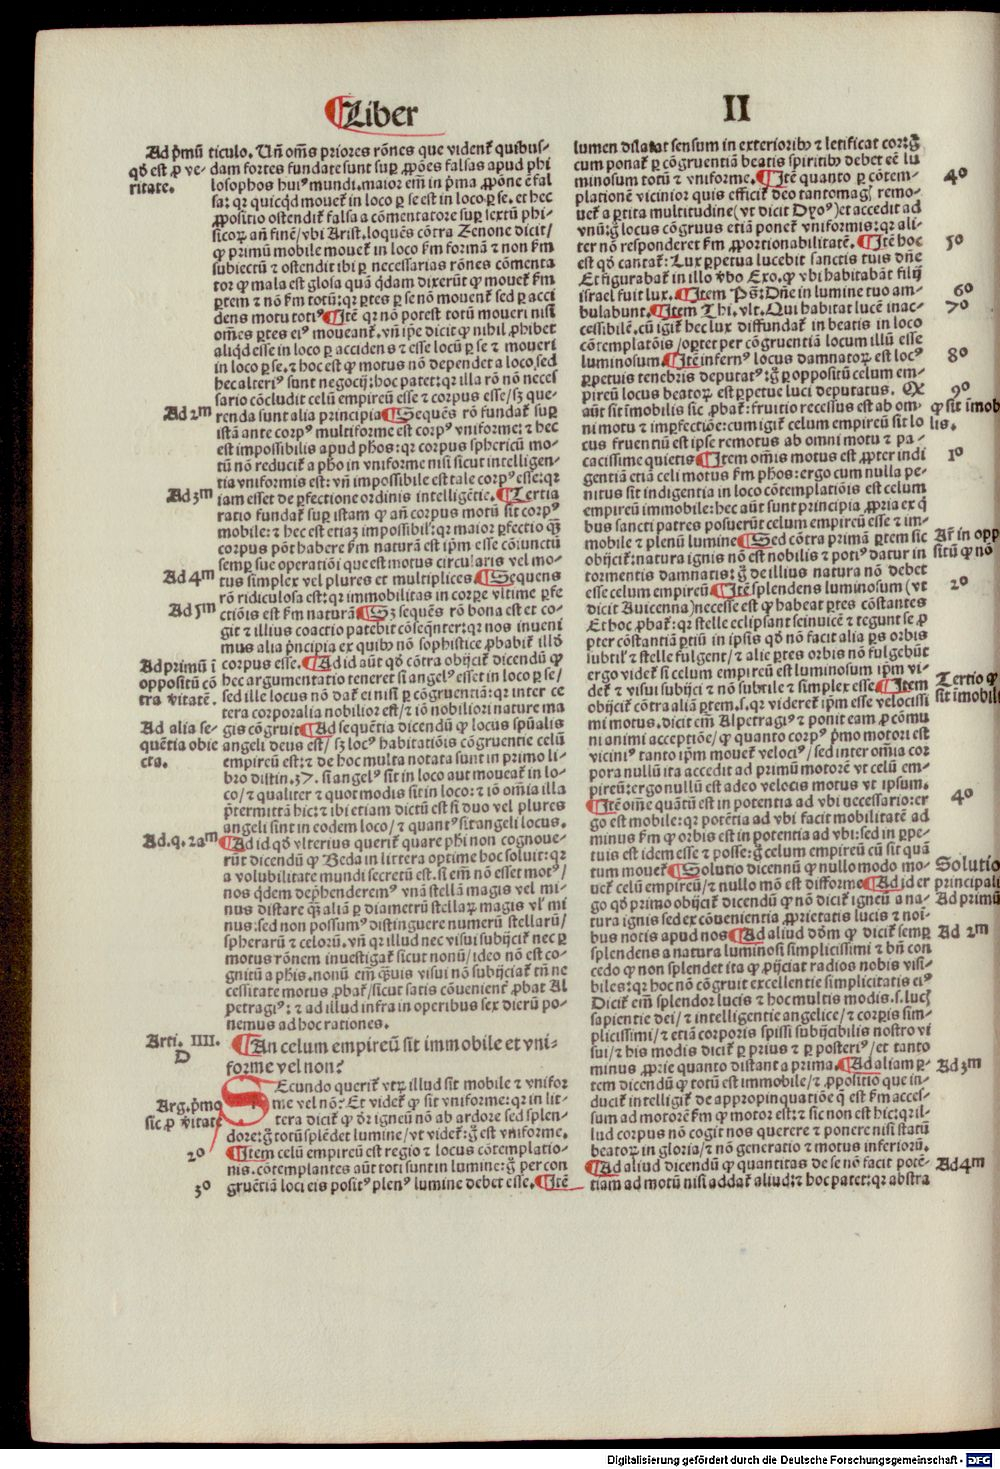 Liber
II
ticulo. Uñ om̃s priores rõnes que vident᷒ quibus-
dam fortes fundate sunt sup̱ ꝓpões falsas apud phi
losophos hui⁹ mundi. maior em̃ in p̃ma ꝓpõne ẽ fal
sa: qꝛ quicq̃d mouet᷒ in loco ꝑ se est in loco ꝑ se. et hec
ꝓpositio ostendit᷒ falsa a cõmentatore sup̱ sextũ phi-
sicoꝝ añ finẽ/ vbi Arist. loquẽs cõtra Zenone dicit/
ꝙ primũ mobile mouet᷒ in loco ẜm formã ⁊ non ẜm
subiectũ ⁊ ostendit ibi ꝑ necessarias rões cõmenta
tor ꝙ mala est glosa quã q̃dam dixerũt ꝙ mouet᷒ ẜm
ꝑtem ⁊ nõ ẜm totũ: qꝛ ꝑtes ꝑ se nõ mouent᷒ sed ꝑ acci
dens motu toti⁹ ¶Itẽ qꝛ nõ potest totũ moueri nisi
om̃es ꝑtes ei⁹ moueant᷒. vñ ip̃e dicit ꝙ nihil ꝓhibet
aliq̃d esse in loco ꝑ accidens ⁊ esse locũ ꝑ se ⁊ moueri
in loco ꝑ se. ⁊ hoc est ꝙ motus nõ dependet a loco, sed
hec alteri⁹ sunt negocij: hoc patet: qꝛ illa rõ nõ neces
sario cõcludit celũ empireũ esse ⁊ corpus esse/ sꝫ que-
renda sunt alia principia ¶Sequẽs rõ fundat᷒ sup̱
istã ante corp⁹ multiforme est corp⁹ vniforme: ⁊ hec
est impossibilis apud phos: qꝛ corpus sphericũ mo-
tũ nõ reducit᷒ a pho in vniforme nisi sicut intelligen-
tia vniformis est: vñ impossibile est tale corp⁹ esse: qꝛ
iam esset de ꝑfectione ordinis intelligẽtie. ¶Tertia
ratio fundat᷒ sup̱ istam ꝙ añ corpus motũ sit corp⁹
mobile: ⁊ hec est etiaꝫ impossibił: qꝛ maior ꝑfectio q̃ꝫ
corpus põt habere ẜm naturã est ip̃m esse cõiunctũ
semp̱ sue operatiõi que est motus circularis vel mo-
tus simplex vel plures et multiplices. ¶Sequens
rõ ridiculosa est: qꝛ immobilitas in corpe vltime ꝑfe
ctiõis est ẜm naturã ¶Sꝫ sequẽs rõ bona est et co-
git ⁊ illius coactio patebit cõseq̃nter: qꝛ nos inueni
mus alia p̃ncipia ex quibꝰ nõ sophistice ꝓbabit᷒ illd̃
corpus esse. ¶Ad id aũt qd̃ cõtra obijcit᷒ dicendũ ꝙ
hec argumentatio teneret si angel⁹ esset in loco ꝑ se/
sed ille locus nõ dat᷒ ei nisi ꝑ cõgruentiã: qꝛ inter ce
tera corporalia nobilior est/ ⁊ iõ nobiliori nature ma
gis cõgruit ¶Ad sequẽtia dicendũ ꝙ locus sp̃ualis
angeli deus est/ sꝫ loc⁹ habitatiõis cõgruentie celũ
empireũ est: ⁊ de hoc multa notata sunt in primo li-
bro distin. 37. si angel⁹ sit in loco aut moueat᷒ in lo-
co/ ⁊ qualiter ⁊ quot modis sit in loco: ⁊ iõ om̃ia illa
p̃termittã hic: ⁊ ibi etiam dictũ est si duo vel plures
angeli sint in eodem loco/ ⁊ quant⁹ sit angeli locus.
¶Ad id qd̃ vlterius querit᷒ quare phi non cognoue-
rũt dicendũ ꝙ Beda in littera optime hoc soluit: qꝛ
a volubilitate mundi secretũ est. si em̃ nõ esset mot⁹/
nos q̃dem dep̃henderem⁹ vnã stellã magis vel mi-
nus distare q̃ꝫ aliã ꝑ diametrũ stellaꝝ magis vł mi
nus: sed non possum⁹ distinguere numerũ stellarũ/
spherarũ ⁊ celorũ. vñ qꝛ illud nec visui subijcit᷒ nec ꝑ
motus rõnem inuestigat᷒ sicut nonũ/ ideo nõ est co-
gnitũ a phis. nonũ em̃ q̃uis visui nõ subijciat᷒ tñ ne
cessitate motus ꝓbat᷒/ sicut satis cõuenient᷒ ꝓbat Al
petragi⁹: ⁊ ad illud infra in operibus sex dierũ po-
nemus ad hoc rationes.
¶An celum empireũ sit immobile et vni-
forme vel non?
SEcundo querit᷒ vtꝝ illud sit mobile ⁊ vnifor
me vel nõ? Et videt᷒ ꝙ sit vniforme: qꝛ in lit-
tera dicit᷒ ꝙ dr̃ igneũ nõ ab ardore sed splen-
dore: g̃ totũ splẽdet lumine/ vt videt᷒: g̃ est vniforme.
¶Item celũ empireũ est regio ⁊ locus cõtemplatio-
nis. cõtemplantes aũt toti sunt in lumine: g̃ per con
gruẽtiã loci eis posit⁹ plen⁹ lumine debet esse. ¶Itẽ
Ad p̃mũ
qd̃ est ꝓ ve-
ritate.
Ad 2m
Ad 3m
Ad 4m
Ad 5m
Ad primũ ĩ
oppositũ cõ
tra v̾itatẽ.
Ad alia se-
quẽtia obie
cta.
Ad. q. 2am
Arti. IIII.
D
Arg. p̃mo
sic ꝓ v̾itate
2º
3º
lumen dilatat sensum in exterioribꝰ ⁊ letificat cor: g̃
cum ponat᷒ ꝑ cõgruentiã beatis spiritibꝰ debet eẽ lu
minosum totũ ⁊ vniforme. ¶Itẽ quanto ꝑ cõtem-
plationẽ vicinior quis efficit᷒ deo tantomagꝭ remo-
uet᷒ a ꝑtita multitudine (vt dicit Dyo⁹) et accedit ad
vnũ: g̃ locus cõgruus etiã ponet᷒ vniformis: qꝛ ali-
ter nõ responderet ẜm ꝓportionabilitatẽ. ¶Itẽ hoc
est qd̃ cantat᷒: Lux ꝑpetua lucebit sanctis tuis dñe
Et figurabat᷒ in illo v̾bo Exo. ꝙ vbi habitabãt filij
israel fuit lux. ¶Item Ps̃: Dñe in lumine tuo am-
bulabunt. ¶Item Thi. vlt. Qui habitat lucẽ inac-
cessibilẽ. cũ igit᷒ hec lux diffundat᷒ in beatis in loco
cõtemplatõis/ oꝑtet per cõgruentiã locum illũ esse
luminosum. ¶Itẽ infern⁹ locus damnatoꝝ est loc⁹
ꝑpetuis tenebris deputat⁹: g̃ ꝑ oppositũ celum em-
pireũ locus beatoꝝ est ꝑpetue luci deputatus. Qꝙ
aũt sit ĩmobilis sic ꝓbat᷒: fruitio recessus est ab om-
ni motu ⁊ imꝑfectiõe: cum igit᷒ celum empireũ sit lo
cus fruentiũ est ipse remotus ab omni motu ⁊ pa-
cacissime quietis ¶Item om̃is motus est ꝓpter indi
gentiã etiã celi motus ẜm phos: ergo cum nulla pe-
nitus sit indigentia in loco cõtemplatiõis est celum
empireũ immobile: hec aũt sunt principia ꝓpria ex q̃
bus sancti patres posuerũt celum empireũ esse ⁊ im-
mobile ⁊ plenũ lumine ¶Sed cõtra primã ꝑtem sic
obijcit᷒: natura ignis nõ est nobilis ⁊ poti⁹ datur in
tormentis damnatis: g̃ de illius natura nõ debet
esse celum empireũ ¶Itẽ splendens luminosum (vt
dicit Auicenna) necesse est ꝙ habeat ꝑtes cõstantes
Et hoc ꝓbat᷒: qꝛ stelle eclipsant seinuicẽ ⁊ tegunt se ꝓ
pter cõstantiã ꝑtiũ in ipsis qd̃ nõ facit alia ꝑs orbis
subtił ⁊ stelle fulgent/ ⁊ alie ꝑtes orbis nõ fulgebũt
ergo videt᷒ si celum empireũ est luminosum ip̃m vi-
det᷒ ⁊ visui subijci ⁊ nõ subtile ⁊ simplex esse ¶Item
obijcit᷒ cõtra aliã ꝑtem. s. qꝛ videret᷒ ip̃m esse velocissi
mi motus. dicit em̃ Alpetragi⁹ ⁊ ponit eam ꝓ cõmu
ni animi acceptiõe/ ꝙ quanto corp⁹ p̃mo motori est
vicini⁹ tanto ip̃m mouet᷒ veloci⁹/ sed inter om̃ia cor
pora nullũ ita accedit ad primũ motorẽ vt celũ em-
pireũ: ergo nullũ est adeo velocis motus vt ipsum.
¶Itẽ om̃e quãtũ est in potentia ad vbi necessario: er
go est mobile: qꝛ potẽtia ad vbi facit mobilitatẽ ad
minus ẜm ꝙ orbis est in potentia ad vbi: sed in ꝑpe-
tuis est idem esse ⁊ posse: g̃ celum empireũ cũ sit quã
tum mouet᷒ ¶Solutio dicennũ ꝙ nullo modo mo-
uet᷒ celũ empireũ/ ⁊ nullo mõ est difforme ¶Ad id er
go qd̃ primo obijcit᷒ dicendũ ꝙ nõ dicit᷒ igneũ a na-
tura ignis sed ex cõuenientia ꝓprietatis lucis ⁊ noĩ-
bus notis apud nos ¶Ad aliud dõm ꝙ dicit᷒ semp̱
splendens a natura luminosi simplicissimi ⁊ bñ con
cedo ꝙ non splendet ita ꝙ ꝓijciat radios nobis visi-
biles: qꝛ hoc nõ cõgruit excellentie simplicitatis ei⁹
Dicit᷒ em̃ splendor lucis ⁊ hoc multis modis. s. lucꝭ
sapientie dei/ ⁊ intelligentie angelice/ ⁊ corꝑis sim-
plicissimi/ ⁊ etiã corporis spissi subijcibilis nostro vi
sui/ ⁊ his modis dicit᷒ ꝑ prius ⁊ ꝑ posteri⁹/ et tanto
minus ꝓprie quanto distant a prima. ¶Ad aliam ꝑ-
tem dicendũ ꝙ totũ est immobile/ ⁊ ꝓpositio que in-
ducit᷒ intelligit᷒ de appropinquatiõe q̃ est ẜm acces-
sum ad motorẽ ẜm ꝙ motor est: ⁊ sic non est hic: qꝛ il-
lud corpus nõ cogit nos querere ⁊ ponere nisi statũ
beatoꝝ in gloria/ ⁊ nõ generatio ⁊ motus inferiorũ.
¶Ad aliud dicendũ ꝙ quantitas de se nõ facit potẽ-
tiam ad motũ nisi addat᷒ aliud: ⁊ hoc patet: qꝛ abstra
4º
5º
6º
7º
8º
9º
ꝙ sit ĩmob
lis.
1º
Ar̃ in opp
sitũ ꝙ nõ
2º
Tertio ꝙ
sit imobili
4º
Solutio
principali
Ad primũ
Ad 2m
Ad 3m
Ad 4m
Digitalisierung gefördert durch die Deutsche Forschungsgemeinschaft - DFG